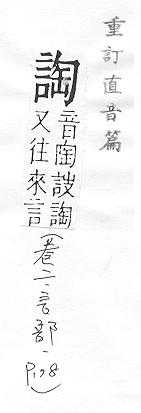 重訂直音篇
詢
音陶詨詢
又往來言
(卷二·言部·P.78)